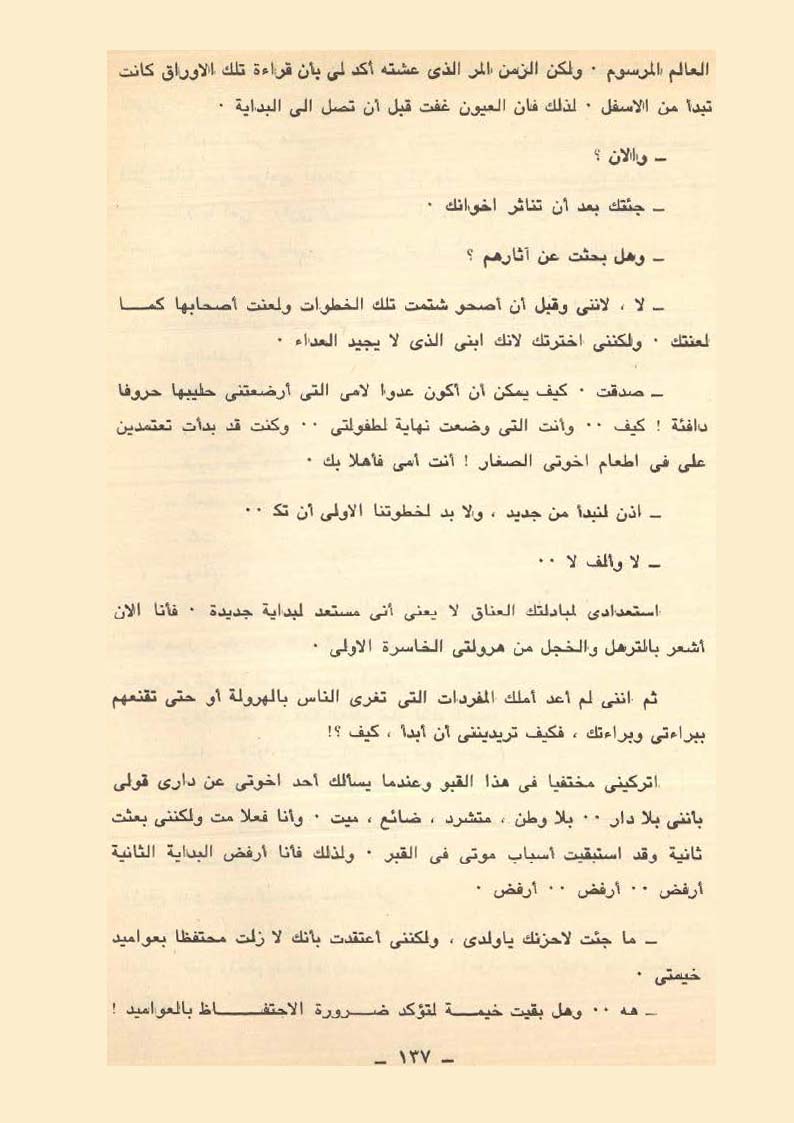 العالم المرسوم ٠ ولكن الزمن المر الذى عشته أكد لى بأن قراءة تلك الاوراق كانت
تبدأ من الاسفل ٠ لذلك فان العيون غفت قبل أن تصل الى البداية ٠
ــ والان ؟
ــ جئتك بعد أن تناثر اخوانك ٠
ــ وهل بحثت عن آثارهم ؟
ــ لا ، لاننى وقبل أن أصحو شتمت تلك الخطوات ولعنت أصحابها كمــا
لعنتك ٠ ولكننى اخترتك لانك ابنى الذى لا يجيد العداء ٠
ــ صدقت ٠ كيف يمكن أن أكون عدوا لامى التى أرضعتنى حليبها حروفا
دافئة ! كيف ٠٠ وأنت التى وضعت نهاية لطفولتى ٠٠ وكنت قد بدأت تعتمدين
على فى اطعام اخوتى الصغار ! أنت أمى فأهلا بك ٠
ــ اذن لنبدأ من جديد ، ولا بد لخطوتنا الاولى أن تك ٠٠
ــ لا وألف لا ٠٠
استعدادى لمبادلتك العناق لا يعنى أنى مستعد لبداية جديدة ٠ فأنا الان
أشعر بالترهل والخجل من هرولتى الخاسرة الاولى ٠
ثم اننى لم أعد أملك المفردات التى تغرى الناس بالهرولة أو حتى تقنعهم
ببراءتى وبراءتك ، فكيف تريديننى أن أبدأ ، كيف ؟!
اتركينى مختفيا فى هذا القبو وعندما يسألك أحد اخوتى عن دارى قولى
بأننى بلا دار ٠٠ بلا وطن ، متشرد ، ضائع ، ميت ٠ وأنا فعلا مت ولكننى بعثت
ثانية وقد استبقيت أسباب موتى فى القبر ٠ ولذلك فأنا أرفض البداية الثانية
أرفض ٠٠ أرفض ٠٠ أرفض ٠
ــ ما جئت لاحزنك ياولدى ، ولكننى أعتقدت بأنك لا زلت محتفظا بعواميد
خيمتى ٠
ــ هه ٠٠ وهل بقيت خيمــة لتؤكد ضــرورة الاحتفــاظ بالعواميد !
ــ ١٣٧ ــ